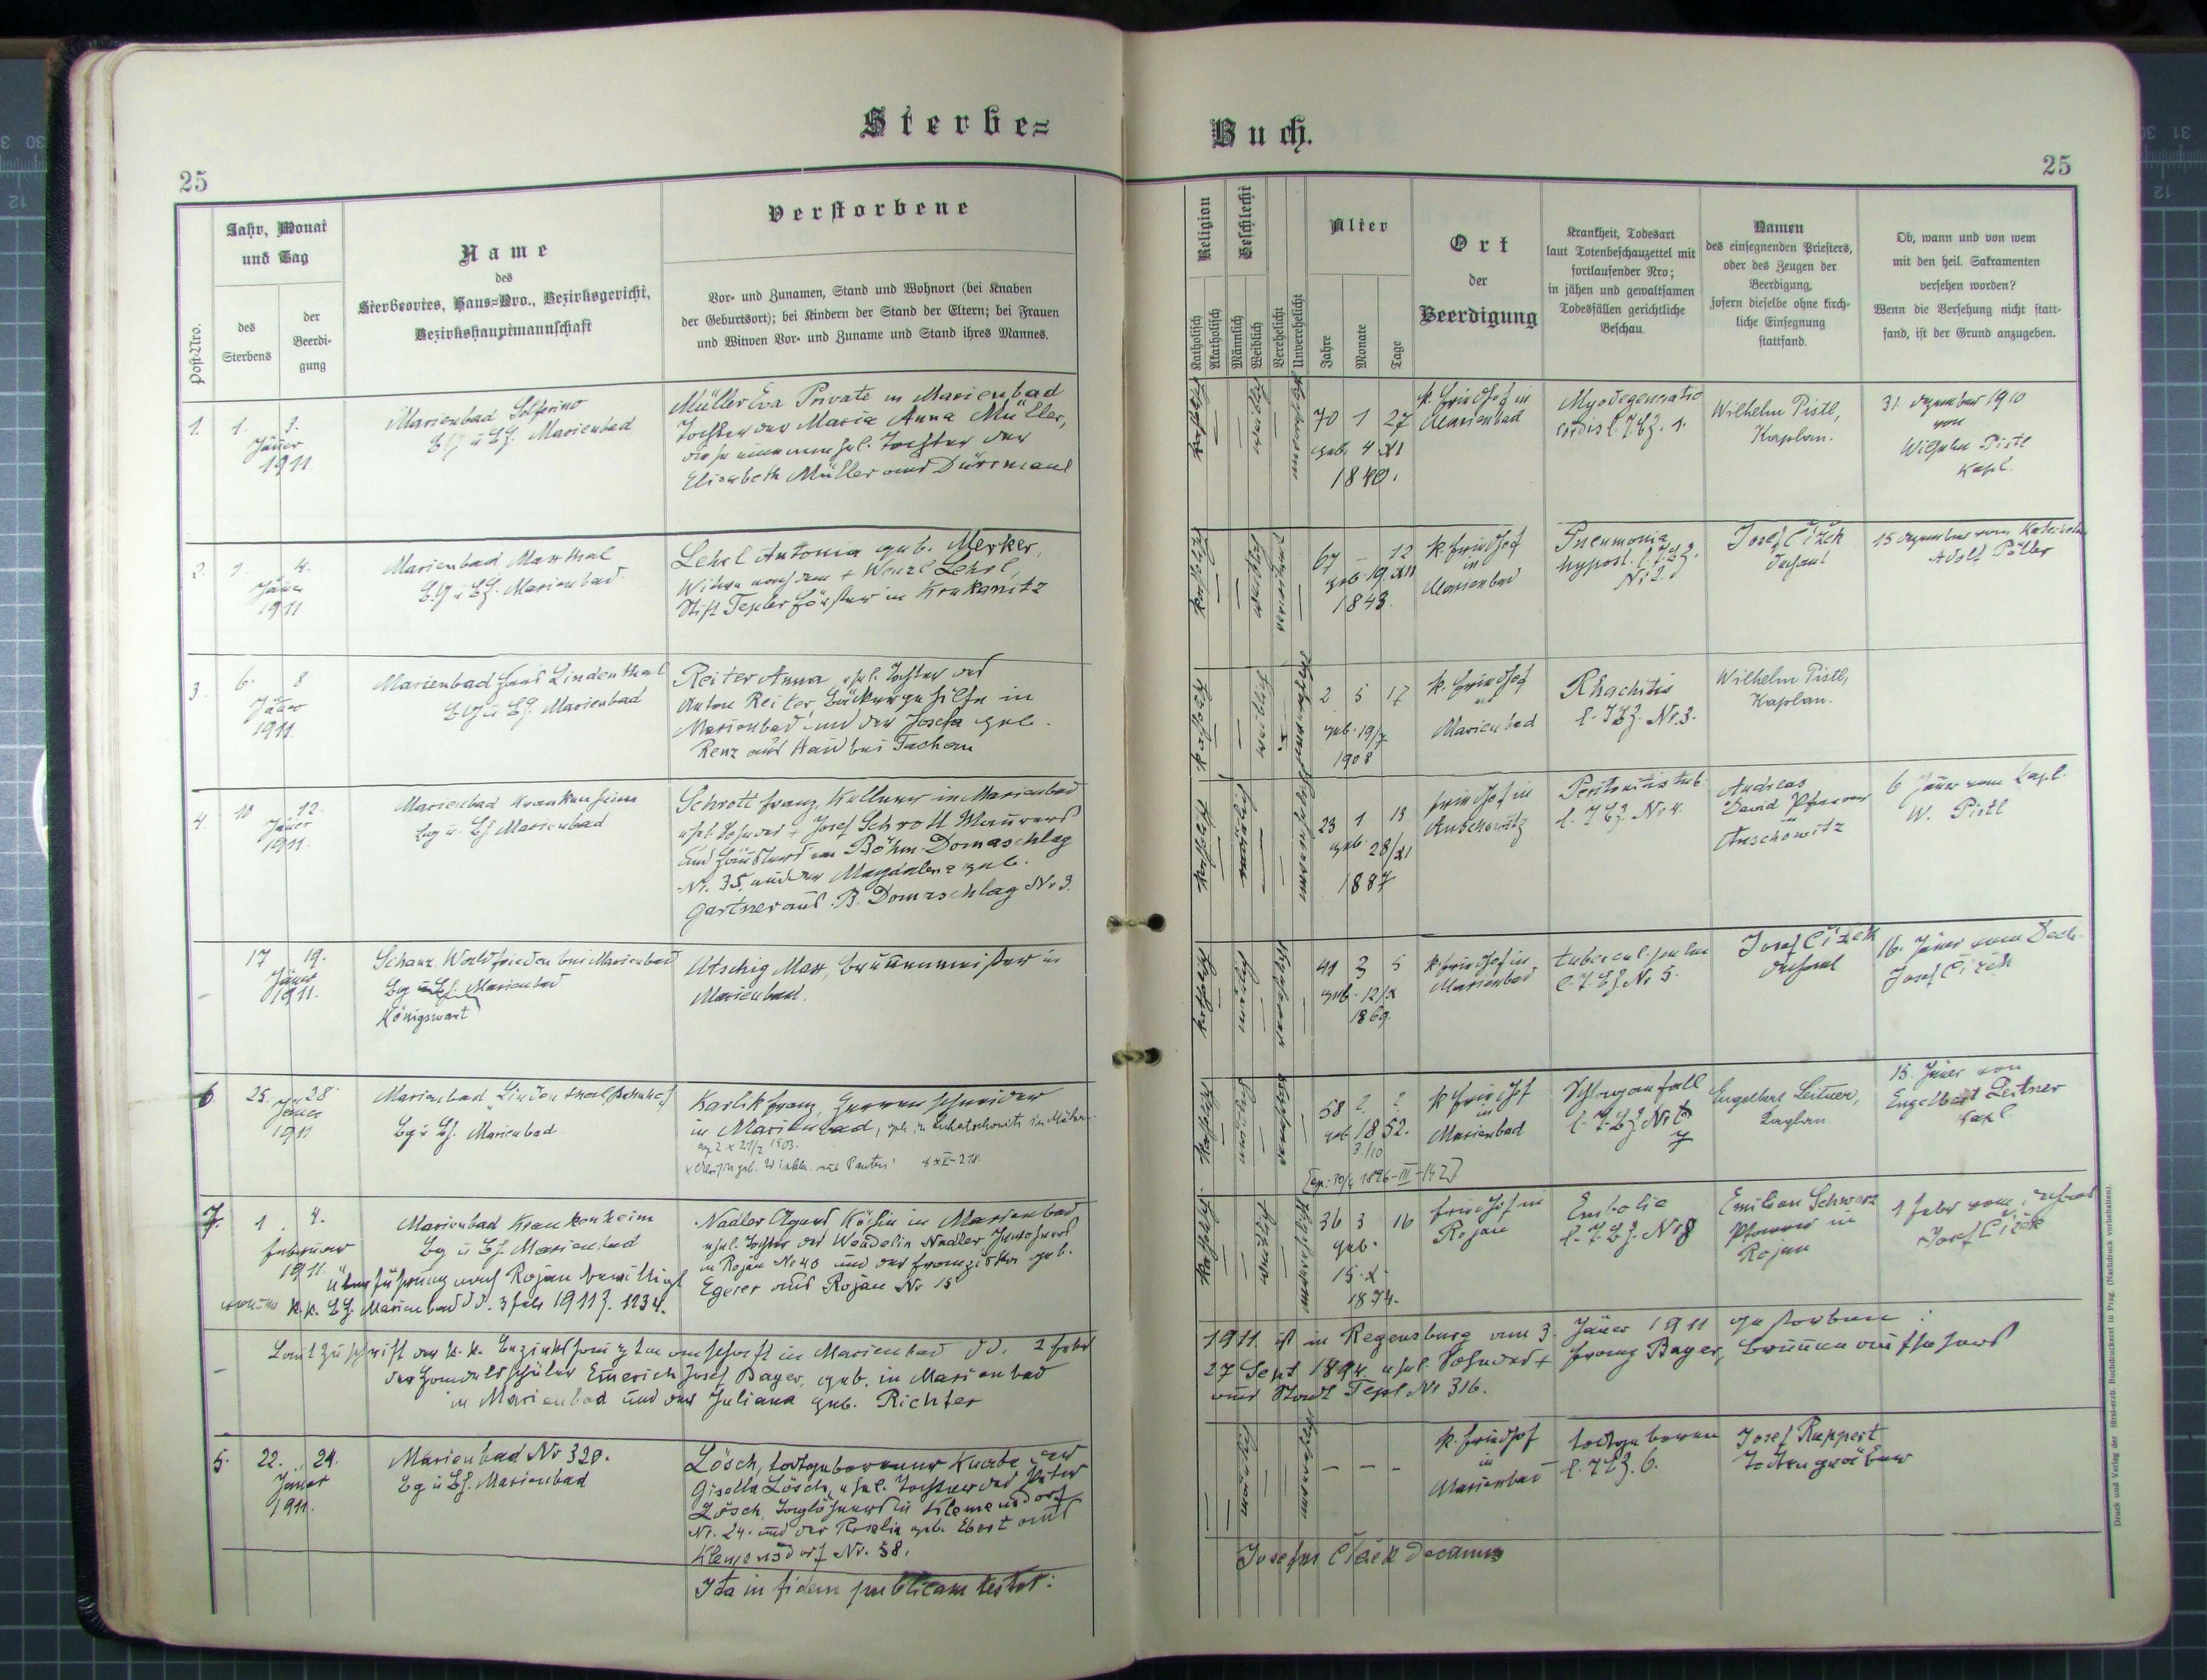 Sterbe=
Buch.
25
25
Post-Nro.
Jahr, Monat
und Tag
des
Sterbens
der
Beerdi-
gung
Name
des
Sterbeortes, Haus-Nro., Bezirksgericht,
Bezirkshauptmannschaft
Verstorbene
Vor- und Zunamen, Stand und Wohnort (bei Knaben
der Geburtsort); bei Kindern der Stand der Eltern; bei Frauen
und Witwen Vor- und Zuname und Stand ihres Mannes.
Religion
Katholisch
Akatholisch
Geschlecht
Männlich
Weiblich
Verehelicht
Unverehelicht
Alter
Jahre
Monate
Tage
Ort
der
Beerdigung
Krankheit, Todesart
laut Totenbeschauzettel mit
fortlaufender Nro;
in jähen und gewaltsamen
Todesfällen gerichtliche
Beschau.
Namen
des einsegnenden Priesters,
oder des Zeugen der
Beerdigung,
sofern dieselbe ohne kirch-
liche Einsegnung
stattfand.
Ob, wann und von wem
mit den heil. Sakramenten
versehen worden?
Wenn die Versehung nicht statt-
fand, ist der Grund anzugeben.
1.
1. 3.
Jäner
1911.
Marienbad Solferino
Bg u Bh. Marienbad
Müller Eva Private in Marienbad
Tochter der Maria Anna Müller,
Tochter der
Elisabeth Müller aus Dürrmaul
70 1 27
geb. 4 XI
1840.
k. Friedhof in
Marienbad
Myodegeneratio
cordis l. TBZ. 1.
Wilhelm Pistl,
Kaplan.
31 Dezember 1910
von
Wilhelm Pistl
Kapl.
2.
1. 4.
Jäner
1911
Marienbad Marthal
Bg u Bh. Marienbad.
Lehrl Antonia geb. Merker,
Witwe nach dem + Wenzl Lehrl,
Stift Tepler Förster in Krukanitz
67 – 12
geb. 19. XII
1843.
k. Friedhof
in
Marienbad
Pneumonia
hypost. l. TBZ.
Nr 2.
Josef Čížek
Dechant
15 Dezember vom
Adolf
3.
6. 8
Jäner
1911.
Marienbad Haus Lindenthal
Bg u Bh. Marienbad
Reiter Anna, ehel. Tochter des
Anton Reiter, Bäckergehilfe in
Marienbad und der Josefa geb.
Renz aus Haid bei Tachau
2 5 17
geb. 19/7
1908
k. Friedhof
Marienbad
Rhachitis
l. TBZ. Nr. 3.
Wilhelm Pistl,
Kaplan.
4.
10 12.
Jäner
1911.
Marienbad Krankenheim
Bg u. Bh. Marienbad
Schrott Franz, Kellner in Marienbad
ehel. Sohn des + Josef Schrott Maurers
und Häuslers in Böhm. Domaschlag
Nr. 35, und der Magdalena geb.
Gartner aus B. Domaschlag Nr 3.
23 1 13
geb. 28/XI
1887
Friedhof in
Auschowitz
Peritonitis tub.
l. TBZ. Nr 4.
Andreas
David Pfarrer
Auschowitz
6 Jäner vom Kapl.
W. Pistl
–
17 19.
Jäner
1911.
Schanz Waldfrieden bei Marienbad
Bg u Bh. Marienbad
Königswart
Utschig Max, Brunnenmeister in
Marienbad.
41 3 5
geb. 12/X
1869.
k. Friedhof in
Marienbad
l. TBZ Nr 5.
Josef Čížek
Dechant
16. Jäner vom Dech.
Josef Čížek
6
25. 28.
Jäner
1911
Marienbad Lindenthal
Bg u Bh. Marienbad
Karlik Franz, Herrenschneider
in Marienbad, geb. in Luhatschowitz in Mähren
58 ? ?
geb. 1852.
3/10
k Friedhof
in
Marienbad
Schlaganfall
l. TBZ Nr 7
Engelbert Leitner,
Kaplan
15. Jäner von
Engelbert Leitner
Kapl.
7.
1. 4.
Februar
1911.
Marienbad Krankenheim
Bg u Bh. Marienbad
Überführung nach Rojau bewilligt
k.k. Bh. Marienbad dd. 3 Feb. 1911 Z. 1234.
Nadler Agnes, Köchin in Marienbad,
ehel. Tochter des Wendelin Nadler
in Rojau No 40 und der Franziska geb.
Egerer aus Rojau No 15
36 3 16
geb.
15. X.
1874.
Friedhof in
Rojau
Embolie
l. TBZ. Nr 8
Emilian Schwarz
Pfarrer in
Rojau
1 Feber vom Dechant
Josef Čížek
–
Laut Zuschrift der k.k. Bezirkshauptmannschaft in Marienbad dd. 2 Feber
der Handelsschüler Emerich Josef Bayer, geb. in Marienbad
in Marienbad und der Juliana geb. Richter
1911 ist in Regensburg am 3. Jäner 1911 gestorben :
27 Sept 1894 ehel. Sohn des + Franz Bayer, Brunnenaufsehers
aus Stadt Tepl Nr 316.
5.
22. 24.
Jäner
1911.
Marienbad Nr 320.
Bg u Bh. Marienbad
Lösch, todtgeborener Knabe der
Gisella Lösch, ehel. Tochter des Peter
Lösch, Taglöhners in Klemensdorf
Nr. 24. und der Rosalia geb. Ebert aus
Klemensdorf Nr. 58.
– – –
k. Friedhof
in
Marienbad
todtgeboren
l. TBZ. 6.
Josef Ruppert
Todtengräber
Ita in fidem publicam testor:
Josefus Čížek decanus
Druck und Verlag der fürst-erzb. Buchdruckerei in Prag. (Nachdruck vorbehalten).